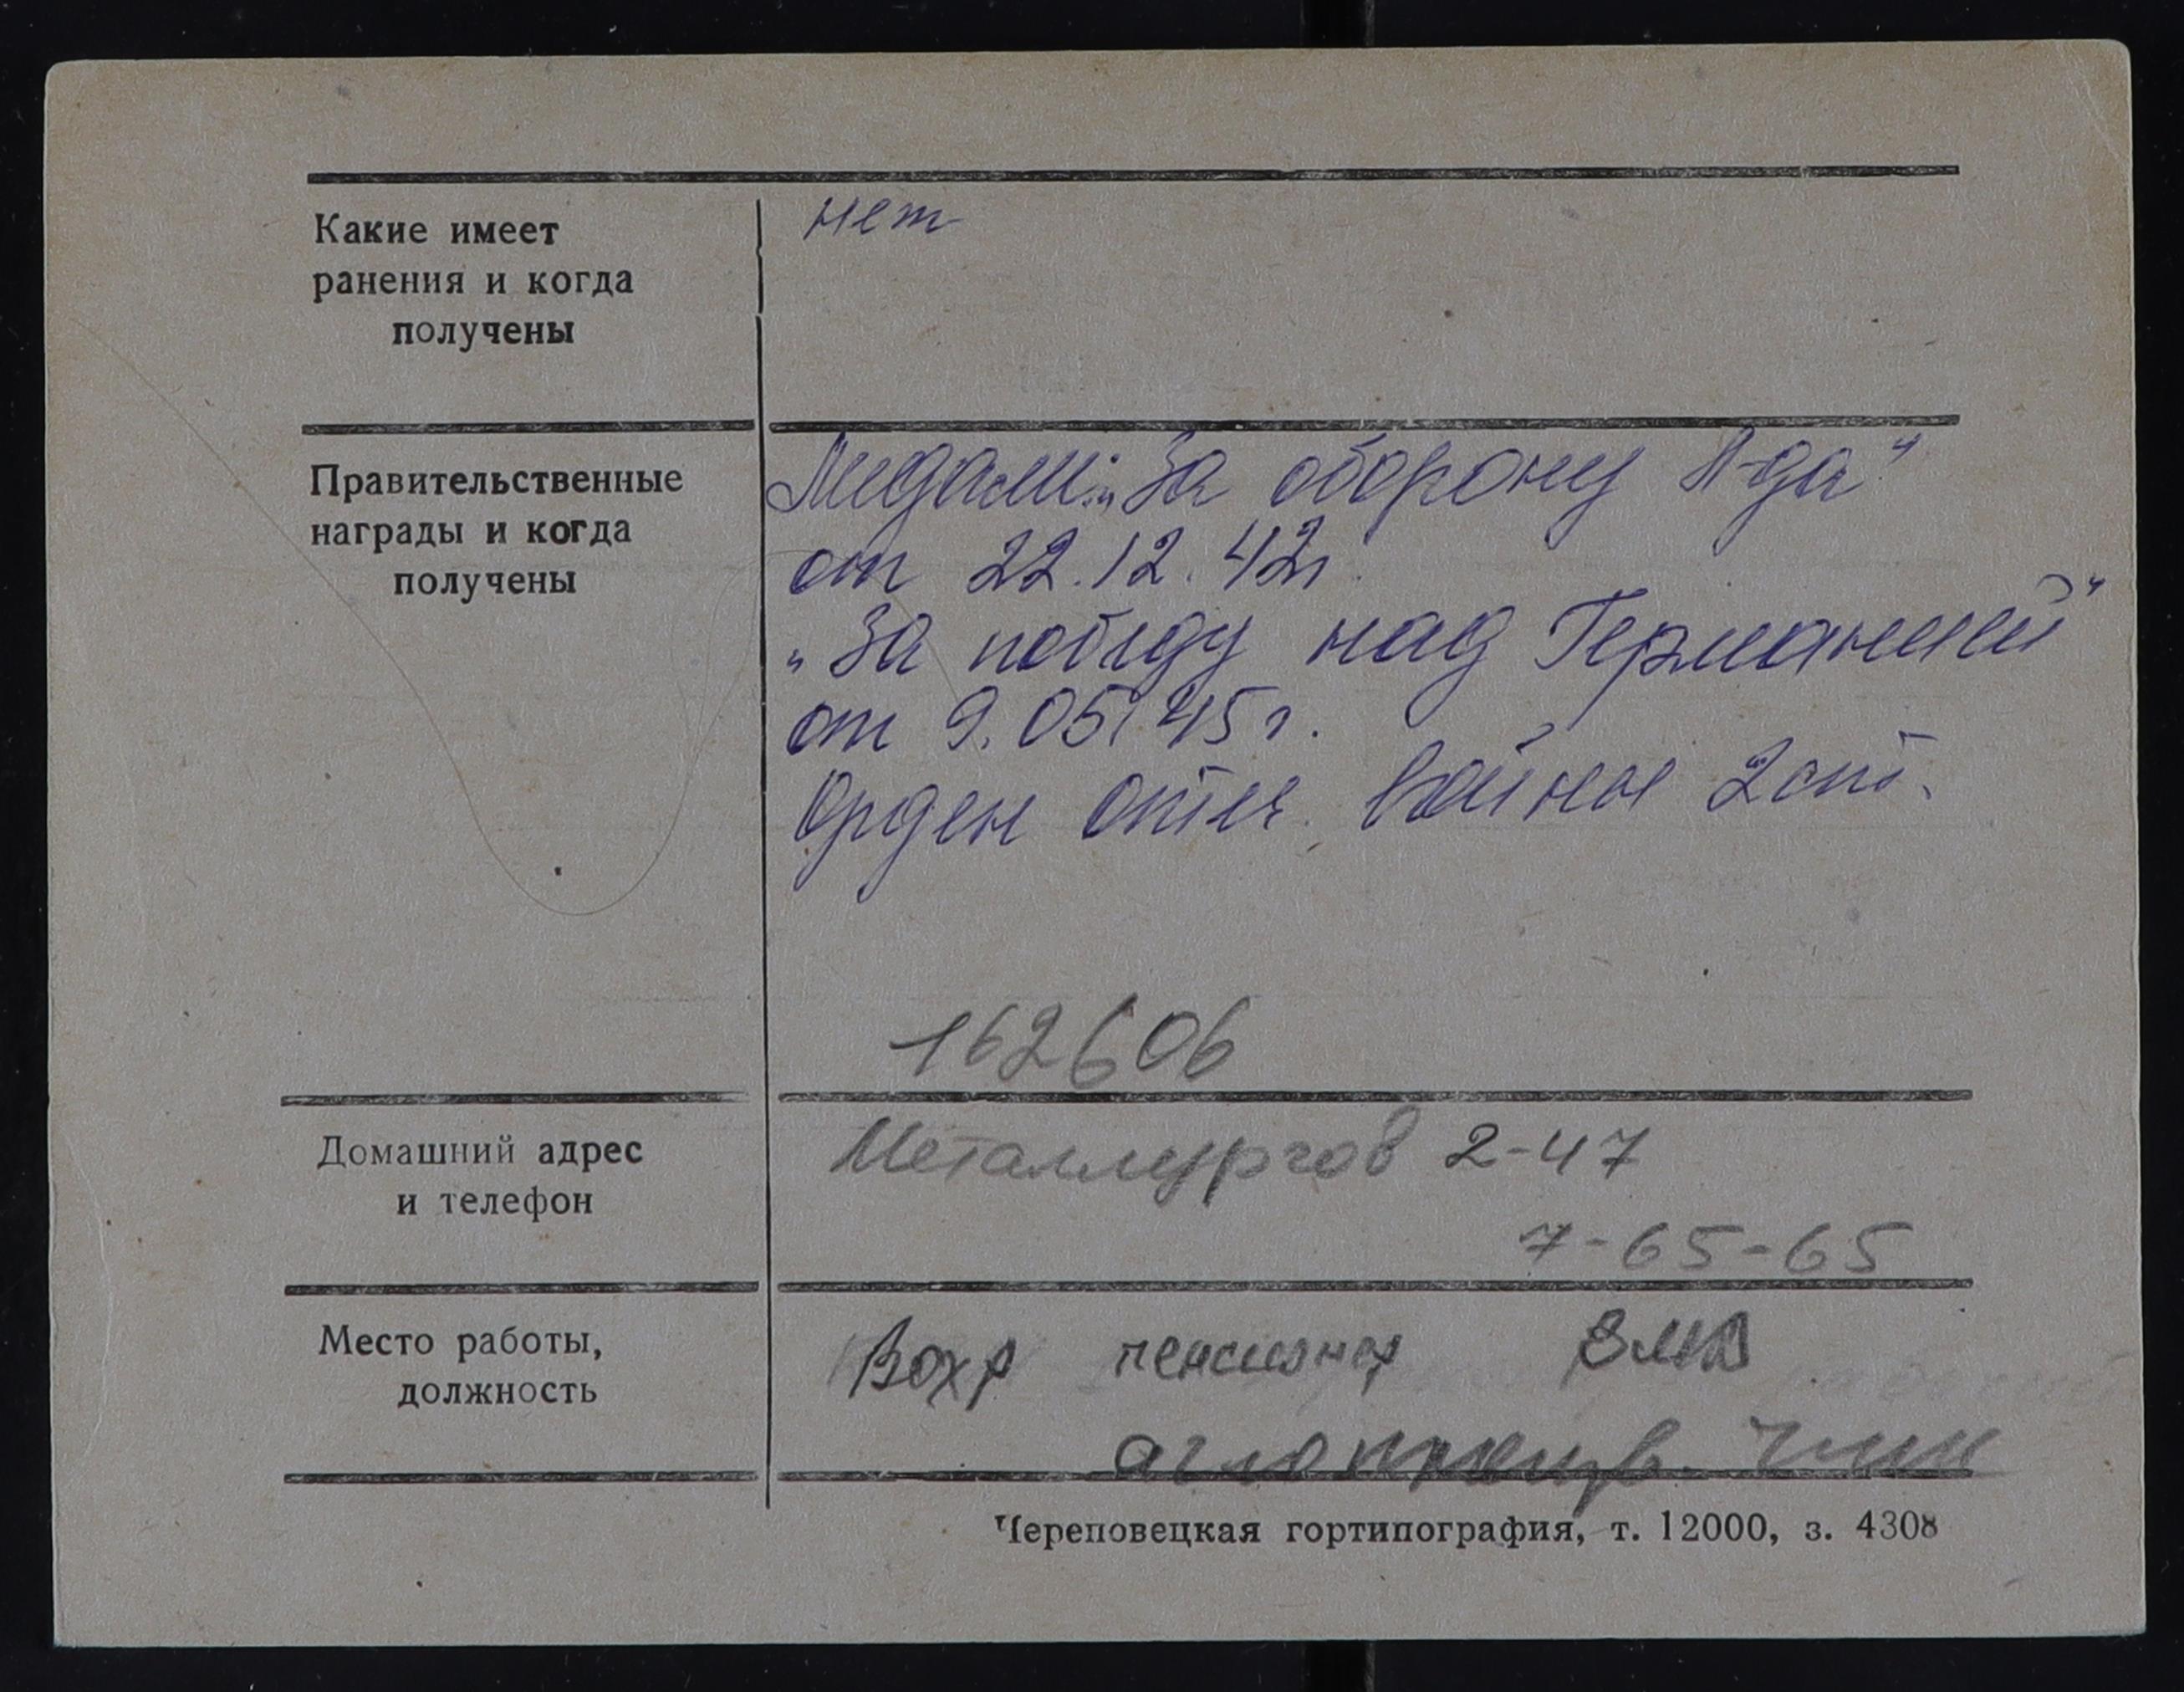 Какие имеет
ранения и когда
получены
нет
Правительственные
награды и когда
получены
Медали: „За оборону Л-да“
от 22.12.42г.
„За победу над Германией“
от 9.05.45г.
Орден отеч. войны 2 ст.
162606
Домашний адрес
и телефон
Металлургов 2-47
7-65-65
Место работы,
должность
Вохр пенсионер
Череповецкая гортипография, т. 12000, з. 4308